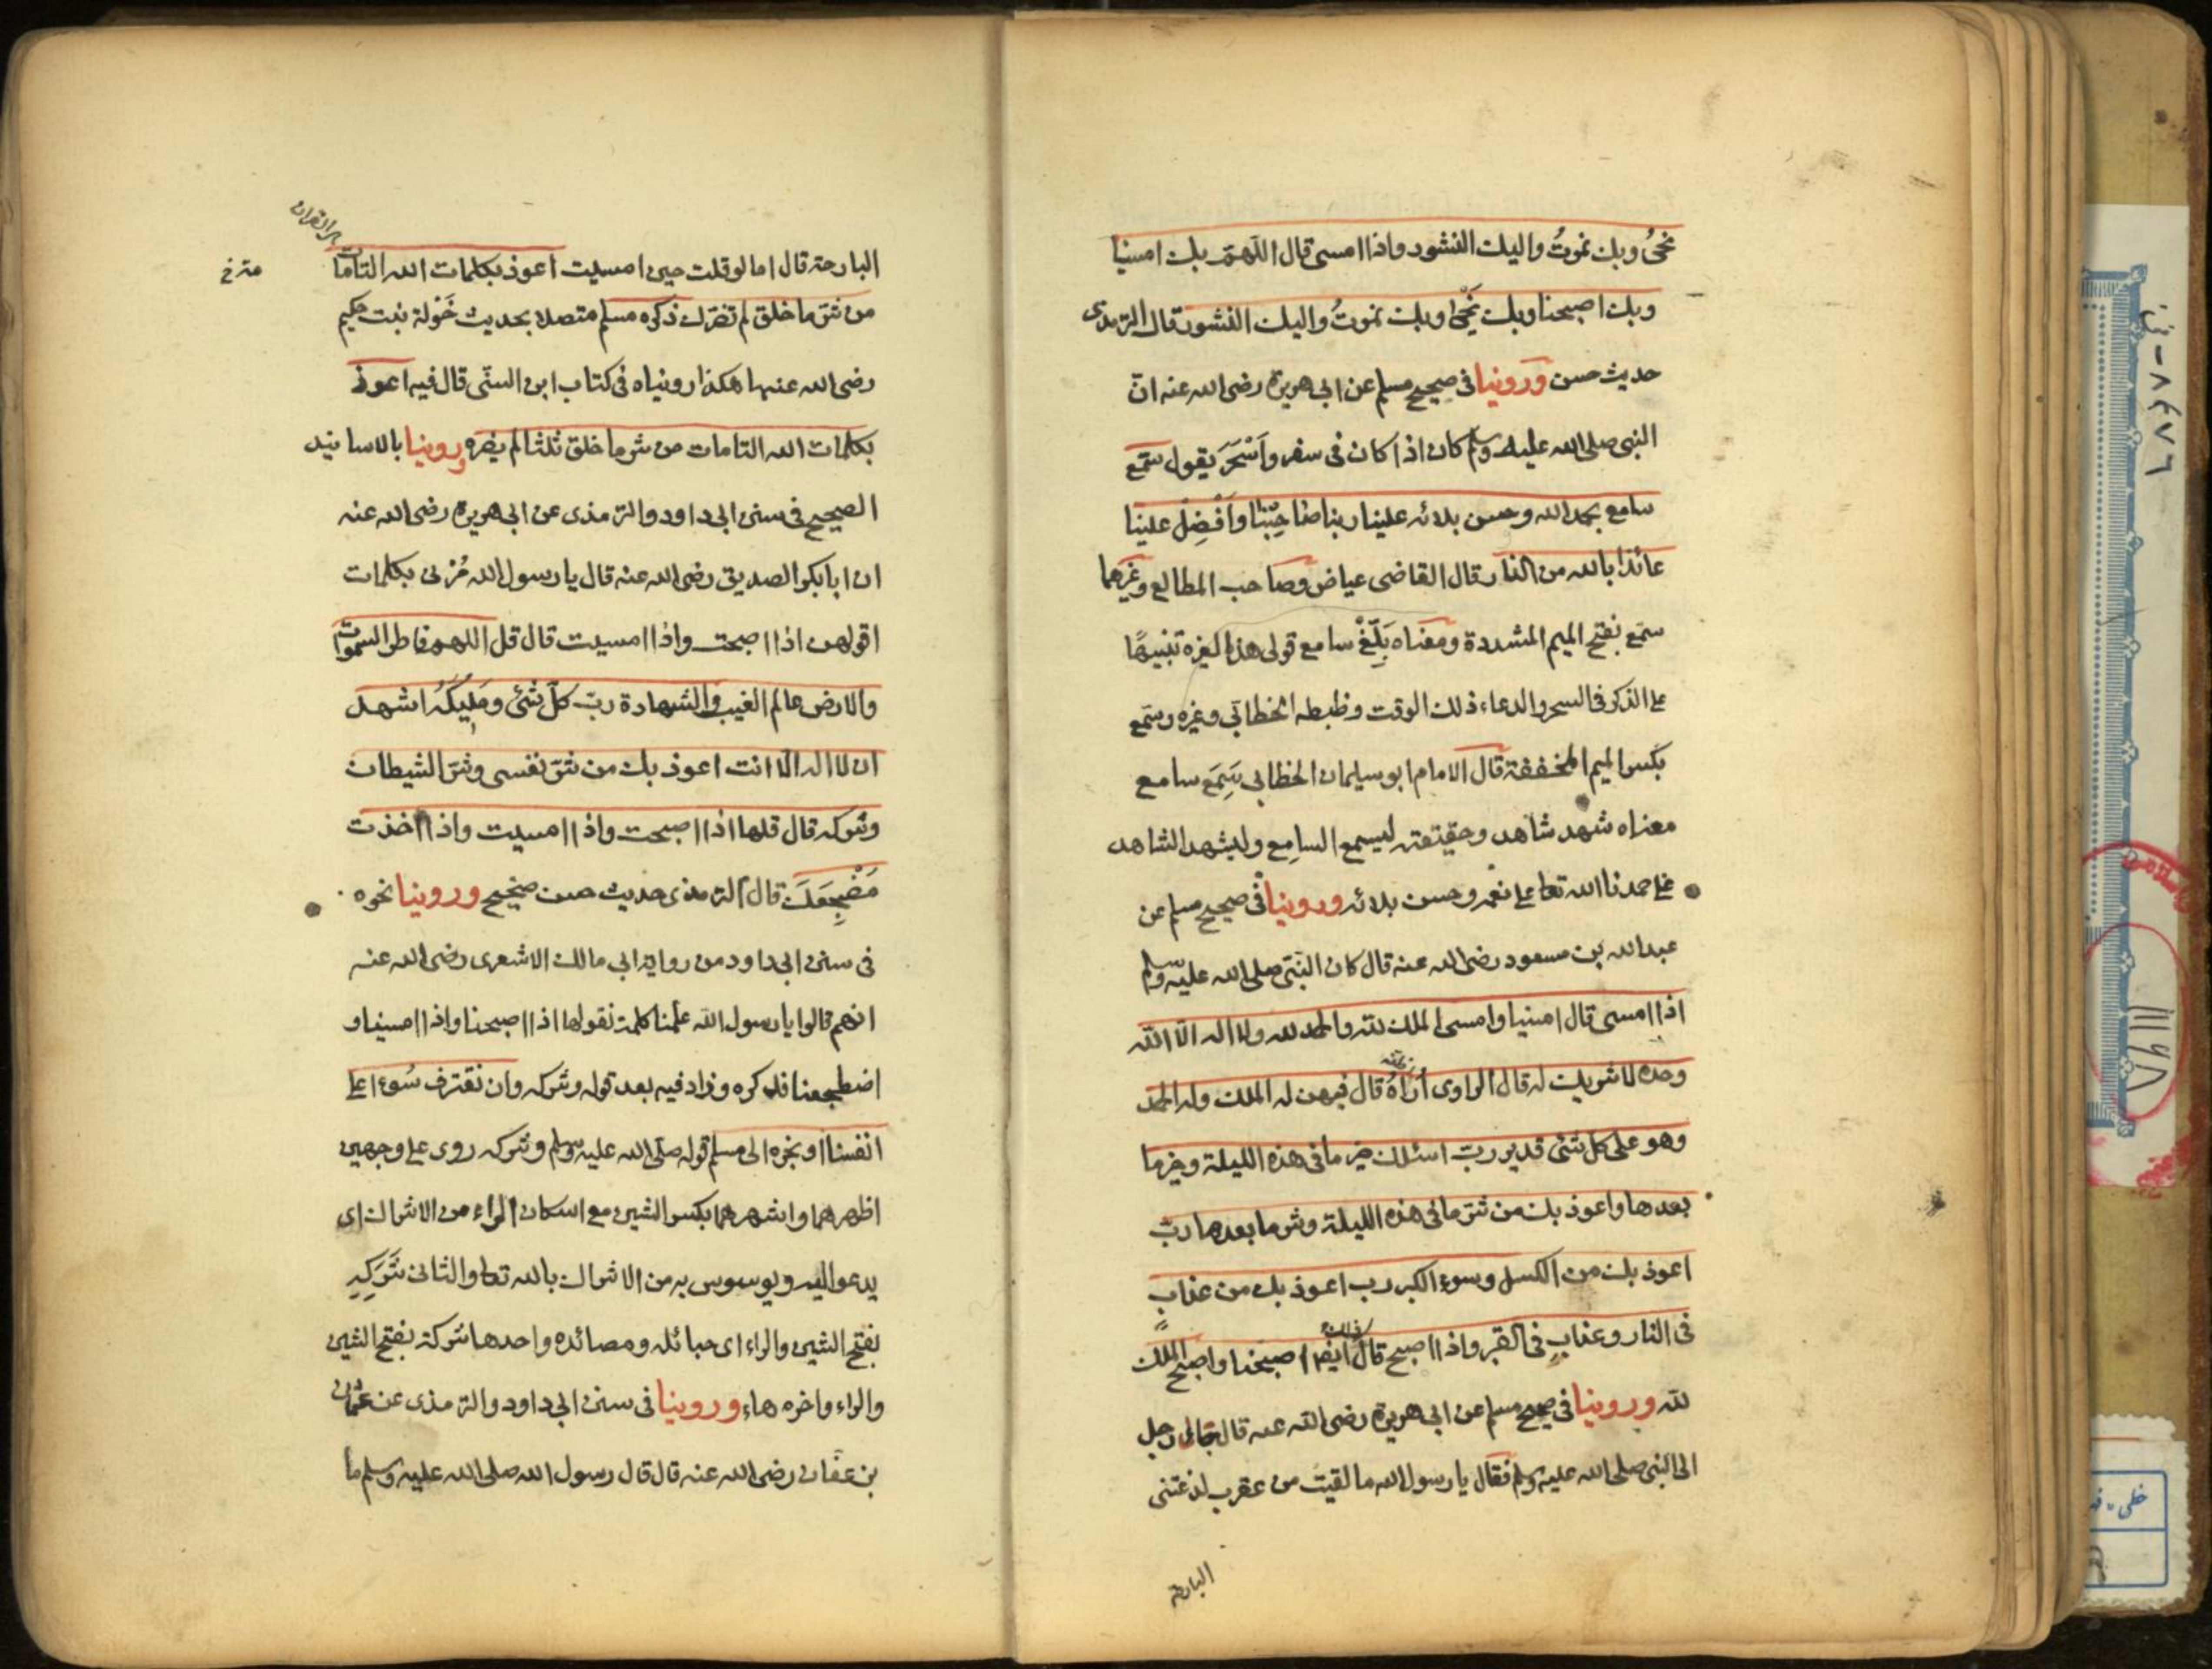 نحيُ وبك نموتُ واليك النشور واذا امسى قال اللّهمّ بك امسينا
وبك اصبحنا وبك نَحْيٰ وبك نموتُ واليك النشور قال الترمذى
حديث حسن وروينا فى صحيح مسلم عن ابى هريرة رضى الله عنه انّ
النبى صلى الله عليه وسلم كان اذا كان فى سفر وأَسْحَرَ يقول سمّع
سامع بحمد الله وحسن بلائه علينا ربنا صَاحِبْنَا وأَفْضِلْ علينا
عائذا بالله من النار قال القاضى عياض وصاحب المطالع وغيرهما
سمّع بفتح الميم المشددة ومعناه بَلَّغَ سامع قولى هذا لغيره تنبيهًا
على الذكر فى السحر والدعاء ذلك الوقت وضبطه الخطابي وغيره سمع
بكسر الميم المخففة قال الامام ابو سليمان الخطابى سَمِعَ سامع
معناه شهد شاهد وحقيقته ليسمع السامع وليشهد الشاهد
على حمدنا الله تعا على نعمه وحسن بلائه وروينا فى صحيح مسلم عن
عبد الله بن مسعود رضى الله عنه قال كان النّبيّ صلى الله عليه وسلم
اذا امسى قال امسينا وامسى الملك لله والحمد لله ولا اله الّا الله
وحده لا شريك له قال الراوى أُرَاهُ قال فيهن له الملك وله الحمد
وهو على كل شئ قدير ربّ اسئلك خير ما فى هذه الليلة وخير ما
بعدها واعوذ بك من شرّ ما فى هذه الليلة وشر ما بعدها ربّ
اعوذ بك من الكسل وسوء الكبر رب اعوذ بك من عذابٍ
فى النار وعذابٍ فى القبر واذا اصبح قال ذلك ايضا اصبحنا واصبح الملك
لله وروينا فى صحيح مسلم عن ابى هريرة رضى الله عنه قال جاء رجل
الى النبى صلى الله عليه وسلم فقال يا رسول الله ما لقيتُ من عقرب لدغتنى
البارحة
البارحة قال اما لو قلت حين امسيت اعوذ بكلمات الله التامات
من شرّ ما خلق لم تضرك ذكره مسلم متصلا بحديث خَوْلة بنت حكيم
رضى الله عنها هكذا روينا ه فى كتاب ابن السنّى قال فيه اعوذ
بكلمات الله التامات من شر ما خلق ثلثا لم يضره وروينا بالاسانيد
الصحيح فى سنن ابى داود والترمذى عن ابى هريرة رضى الله عنه
ان ابا بكر الصديق رضى الله عنه قال يا رسول الله مُرْنى بكلمات
اقولهن اذا اصبحت واذا امسيت قال قل اللهم فاطر السموات
والارض عالم الغيب والشهادة ربّ كلّ شئ ومَلِيكَهُ اشهد
ان لا اله الّا انت اعوذ بك من شرّ نفسى وشرّ الشيطان
وشركه قال قلها اذا اصبحت واذا امسيت واذا اخذت
مَضْجِعَكَ قال الترمذى حديث حسن صحيح وروينا نحوه
فى سنن ابى داود من رواية ابى مالك الاشعرى رضى الله عنه
انهم قالوا يا رسول الله علّمنا كلمة نقولها اذا اصبحنا واذا امسينا و
اضطجعنا فذكره وزاد فيه بعد قوله وشركه وان نقترف سُوءا على
انفسنا او نجره الى مسلم قوله صلّى الله عليه وسلم وشركه روى على وجهين
اظهرهما واشهرهما بكسر الشين مع اسكان الراء من الاشراك اى
يدعو اليه ويوسوس به من الاشراك بالله تعا والثانى شَرَكِهِ
بفتح الشين والراء اى حبائله ومصائده واحدها شركة بفتح الشين
والراء واخره هاء وروينا فى سنن ابى داود والترمذى عن عثمان
بن عفّان رضى الله عنه قال قال رسول الله صلى الله عليه وسلم ما